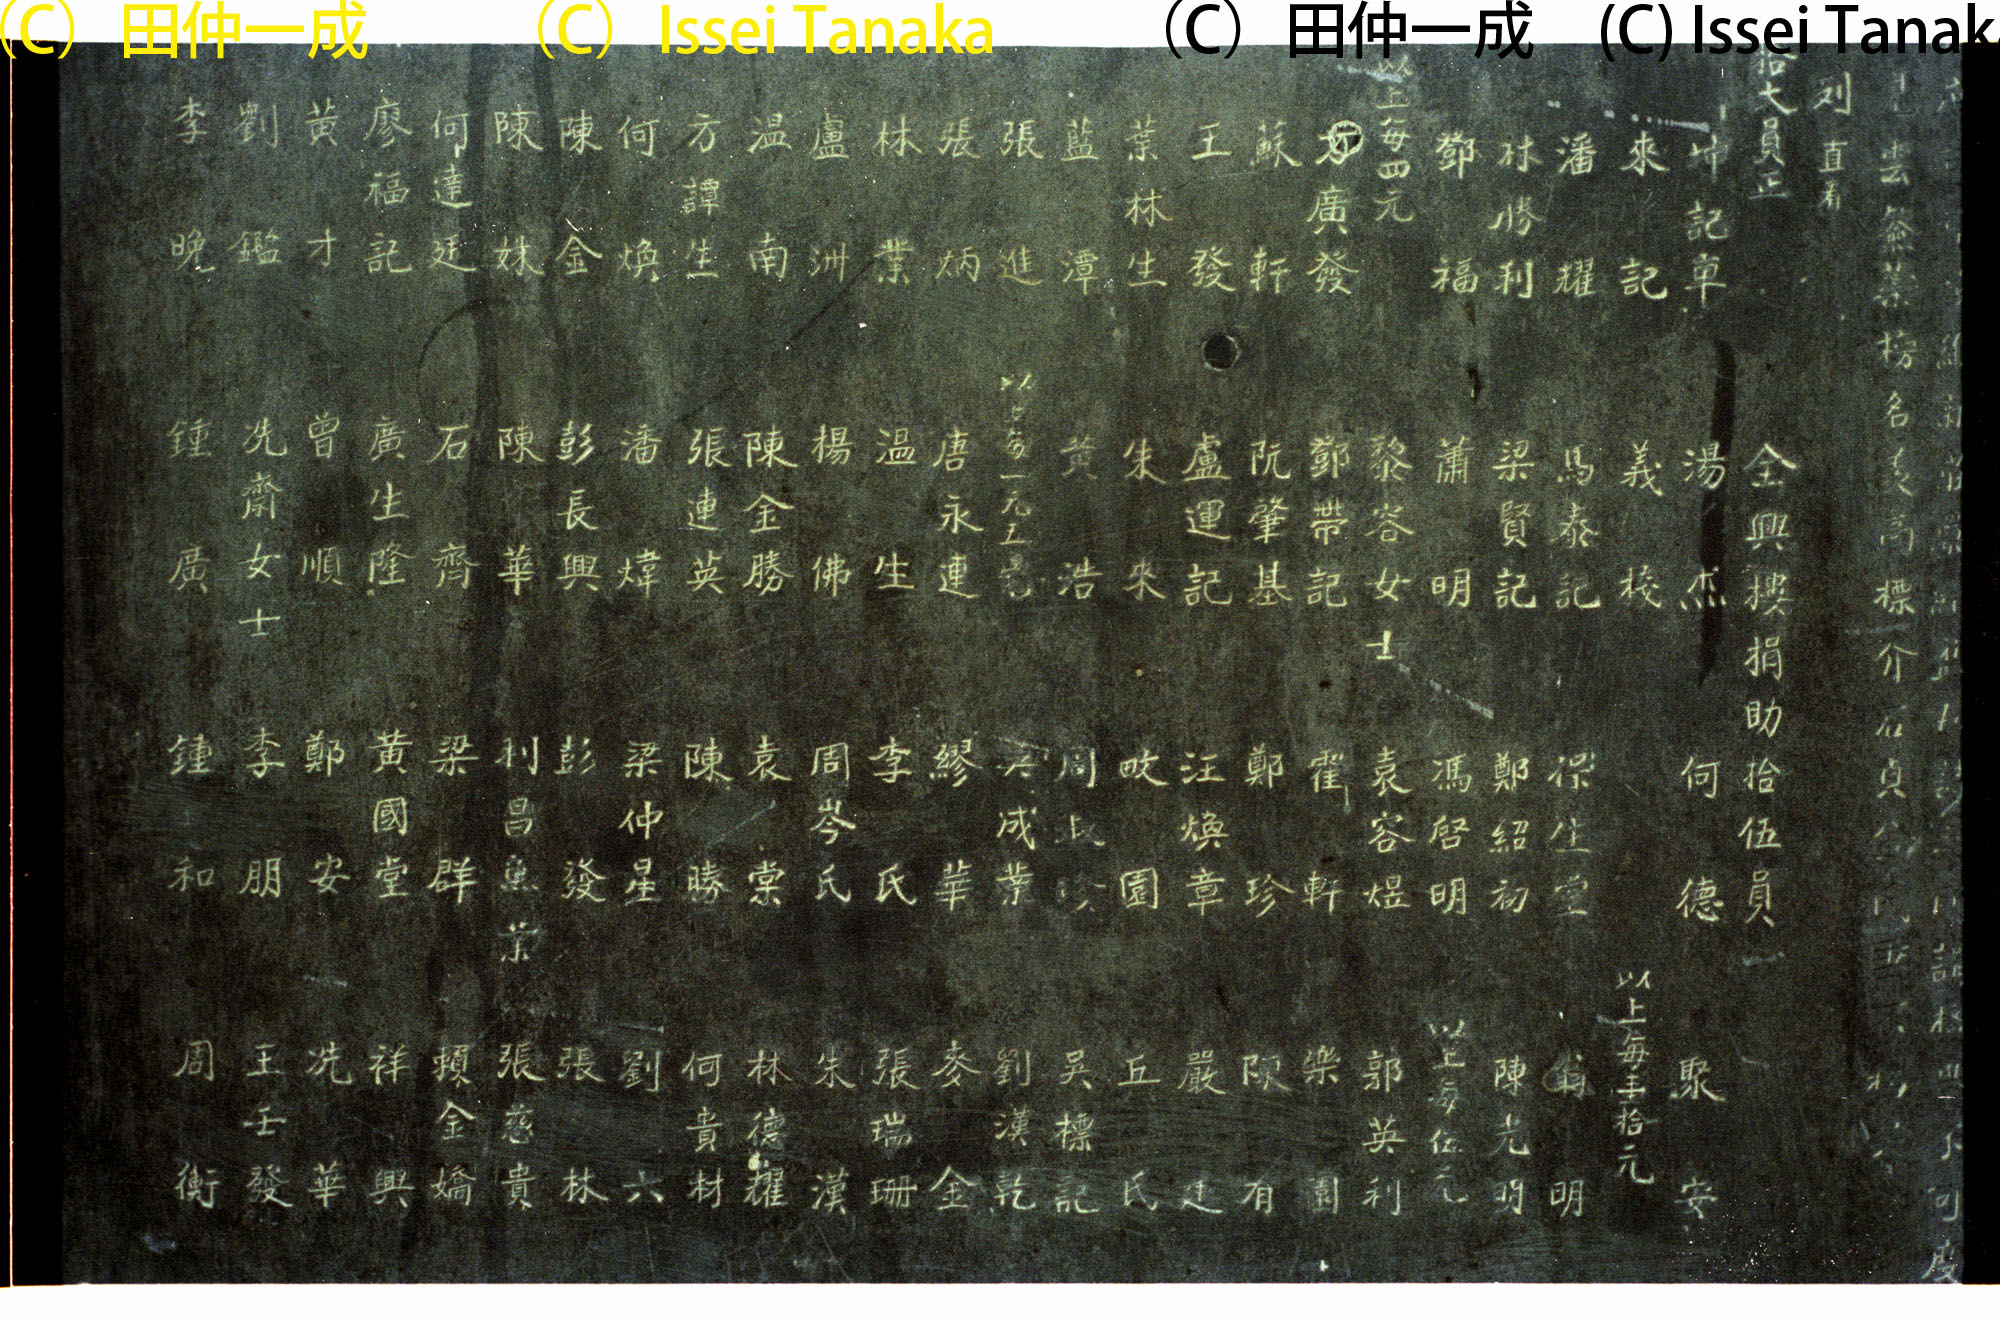 (C) 田仲一成 (C) Issei Tanaka (C) 田仲一成 (C) Issei Tanak
雲 榜名 高標介石貞
列 直看
拾大員正 全興樓捐助拾伍員
記車 湯杰 何德 聚安
來記 義校 以上每 拾元
潘耀 馬泰記 保生堂 翁明
林勝利 梁賢記 鄭紹初 陳光明
鄧福 蕭明 馮啓明 以上每伍元
以上每四元 黎容女士 袁容煜 郭英利
方廣發 鄧帶記 霍軒 樂園
蘇軒 阮肇基 鄭珍 陳有
王發 盧運記 汪煥章 嚴廷
葉林生 朱來 畋園 丘氏
藍潭 黃浩 周 珍 吳標記
張進 以上每一元五毛 吳成業 劉漢乾
張炳 唐永連 繆華 麥金
林業 温生 李氏 張瑞珊
盧洲 楊佛 周岑氏 朱漢
温南 陳金勝 袁棠 林德耀
方譚生 張連英 陳勝 何貴材
何煥 潘煒 梁仲星 劉六
陳金 彭長興 彭發 張林
陳妹 陳華 利昌魚 張慈貴
何達廷 石齊 梁群 賴金嬌
廖福記 廣生隆 黃國堂 祥興
黃才 曾順 鄭安 冼華
劉鑑 冼齋女士 李朋 王壬發
李晚 鍾廣 鍾和 周衡